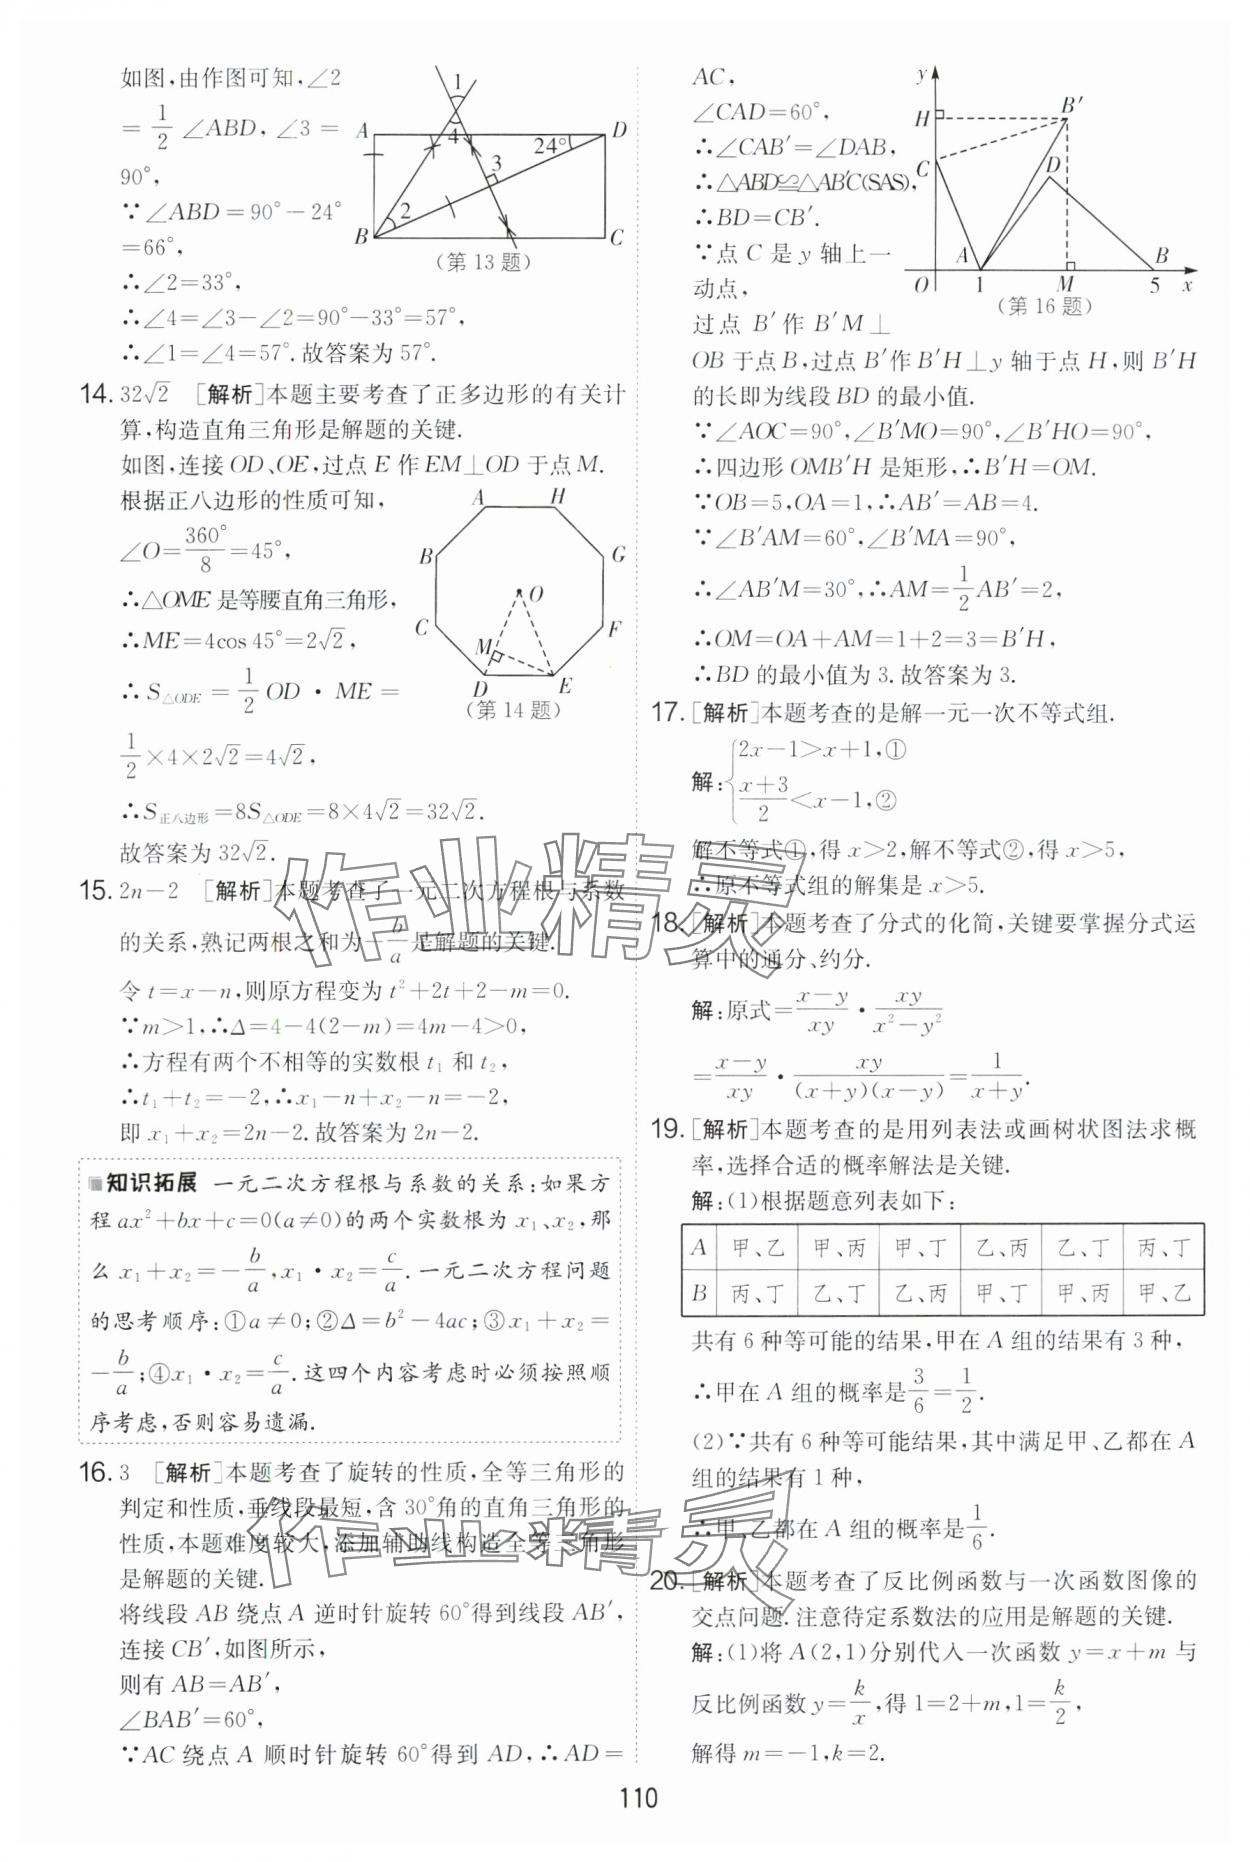 如图,由作图可知,∠2
= 1/2 ∠ABD,∠3 =
90°,
∵∠ABD=90°-24°
=66°,
∴∠2=33°,
∴∠4=∠3-∠2=90°-33°=57°,
∴∠1=∠4=57°.故答案为57°.
A
D
B
C
1
4
24°
3
2
(第13题)
14. 32√2 [解析]本题主要考查了正多边形的有关计
算,构造直角三角形是解题的关键.
如图,连接OD、OE,过点E作EM⊥OD于点M.
根据正八边形的性质可知,
∠O=360°/8=45°,
∴△OME是等腰直角三角形,
∴ME=4cos 45°=2√2,
∴S△ODE = 1/2 OD · ME =
1/2×4×2√2=4√2,
∴S正八边形=8S△ODE=8×4√2=32√2.
故答案为32√2.
A
H
B
G
O
C
F
M
D
E
(第14题)
15. 2n-2 [解析]本题考查了一元二次方程根与系数
的关系,熟记两根之和为-b/a是解题的关键.
令t=x-n,则原方程变为t²+2t+2-m=0.
∵m>1,∴Δ=4-4(2-m)=4m-4>0,
∴方程有两个不相等的实数根t₁和t₂,
∴t₁+t₂=-2,∴x₁-n+x₂-n=-2,
即x₁+x₂=2n-2.故答案为2n-2.
知识拓展 一元二次方程根与系数的关系:如果方
程ax²+bx+c=0(a≠0)的两个实数根为x₁、x₂,那
么x₁+x₂=-b/a,x₁·x₂=c/a.一元二次方程问题
的思考顺序:①a≠0;②Δ=b²-4ac;③x₁+x₂=
-b/a;④x₁·x₂=c/a.这四个内容考虑时必须按照顺
序考虑,否则容易遗漏.
16. 3 [解析]本题考查了旋转的性质,全等三角形的
判定和性质,垂线段最短,含30°角的直角三角形的
性质,本题难度较大,添加辅助线构造全等三角形
是解题的关键.
将线段AB绕点A逆时针旋转60°得到线段AB′,
连接CB′,如图所示,
则有AB=AB′,
∠BAB′=60°,
∵AC绕点A顺时针旋转60°得到AD,∴AD=
AC,
∠CAD=60°,
∴∠CAB′=∠DAB,
∴△ABD≌△AB′C(SAS),
∴BD=CB′.
∵点C是y轴上一
动点,
过点B′作B′M⊥
y
H
B′
C
D
A
B
O
1
M
5
x
(第16题)
OB于点B,过点B′作B′H⊥y轴于点H,则B′H
的长即为线段BD的最小值.
∵∠AOC=90°,∠B′MO=90°,∠B′HO=90°,
∴四边形OMB′H是矩形,∴B′H=OM.
∵OB=5,OA=1,∴AB′=AB=4.
∵∠B′AM=60°,∠B′MA=90°,
∴∠AB′M=30°,∴AM=1/2AB′=2,
∴OM=OA+AM=1+2=3=B′H,
∴BD的最小值为3.故答案为3.
17. [解析]本题考查的是解一元一次不等式组.
解:{2x-1>x+1,①
(x+3)/2<x-1,②
解不等式①,得x>2,解不等式②,得x>5,
∴原不等式组的解集是x>5.
18. [解析]本题考查了分式的化简,关键要掌握分式运
算中的通分、约分.
解:原式=(x-y)/xy · xy/(x²-y²)
=(x-y)/xy · xy/((x+y)(x-y))=1/(x+y).
19. [解析]本题考查的是用列表法或画树状图法求概
率,选择合适的概率解法是关键.
解:(1)根据题意列表如下:
A 甲、乙 甲、丙 甲、丁 乙、丙 乙、丁 丙、丁
B 丙、丁 乙、丁 乙、丙 甲、丁 甲、丙 甲、乙
共有6种等可能的结果,甲在A组的结果有3种,
∴甲在A组的概率是3/6=1/2.
(2)∵共有6种等可能结果,其中满足甲、乙都在A
组的结果有1种,
∴甲、乙都在A组的概率是1/6.
20. [解析]本题考查了反比例函数与一次函数图像的
交点问题.注意待定系数法的应用是解题的关键.
解:(1)将A(2,1)分别代入一次函数y=x+m与
反比例函数y=k/x,得1=2+m,1=k/2,
解得m=-1,k=2.
作业精灵
作业精灵
110